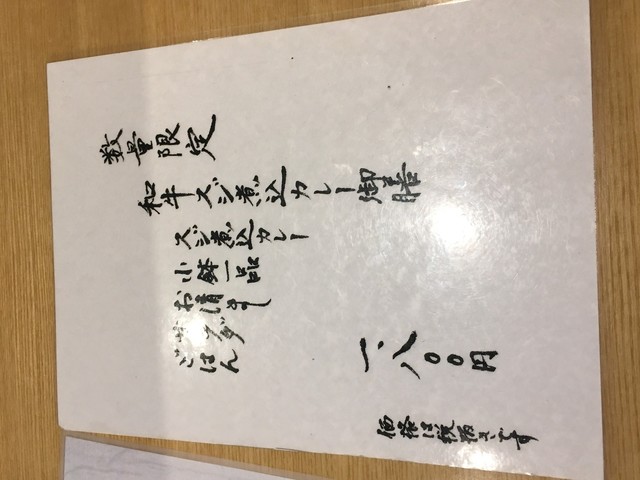 数量限定
和牛スジ煮込カレー御膳
スジ煮込カレー
小鉢一品
お清まし
サラダ
ごはん
一、八〇〇円
価格は税抜きです